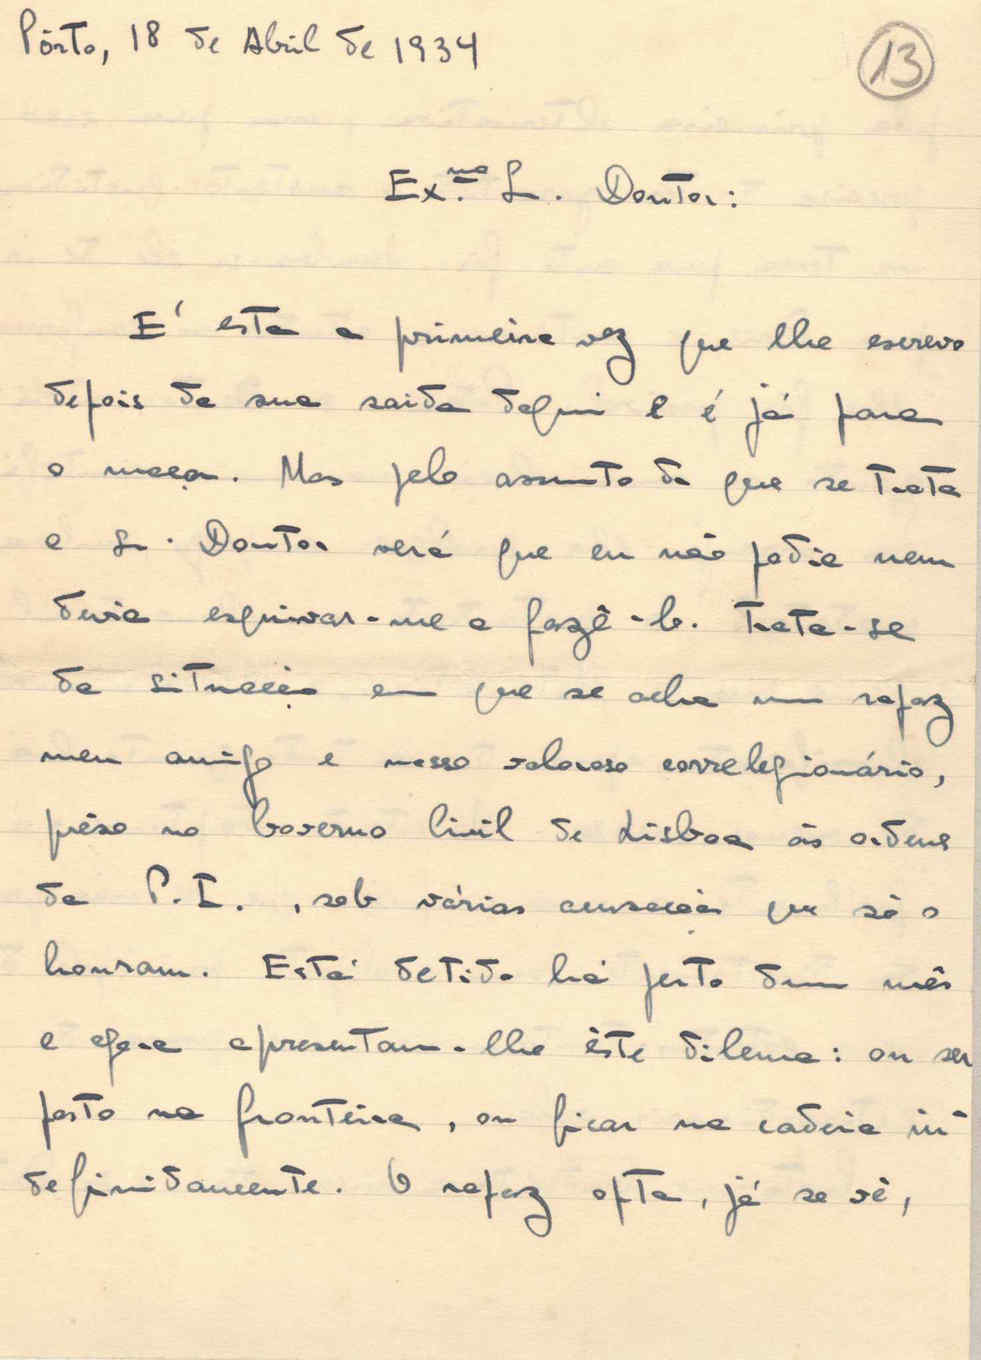 Pôrto, 18 de Abril de 1934
13
Ex.mo Sr. Doutor:
E' esta a primeira vez que lhe escrevo
depois da sua saida daqui e é já para
o maçar. Mas pelo assunto de que se trata
o Sr. Doutor verá que eu não podia nem
devia esquivar-me a fazê-lo. Trata-se
da situação em que se acha um rapaz
meu amigo e nosso valoroso correlegionário,
prêso no Governo Civil de Lisboa ás ordens
da P.I., sob várias acusações que só o
honram. Está detido há perto dum mês
e agora apresentam-lhe êste dilema: ou ser
posto na fronteira, ou ficar na cadeia in-
definidamente. O rapaz opta, já se vê,